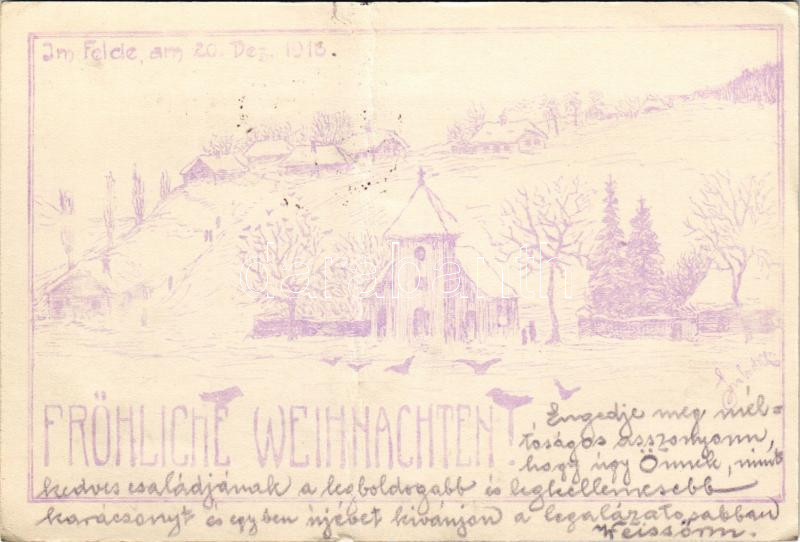 Im Felde, am 20. Dez. 1918.
darabanth
FRÖHLICHE WEIHNACHTEN!
Engedje meg mél=
tóságos asszonyom,
hogy úgy Önnek, mint
kedves családjának a legboldogabb és legkellemesebb
karácsonyt és egyben újévet kivánjon a legalázatosabban